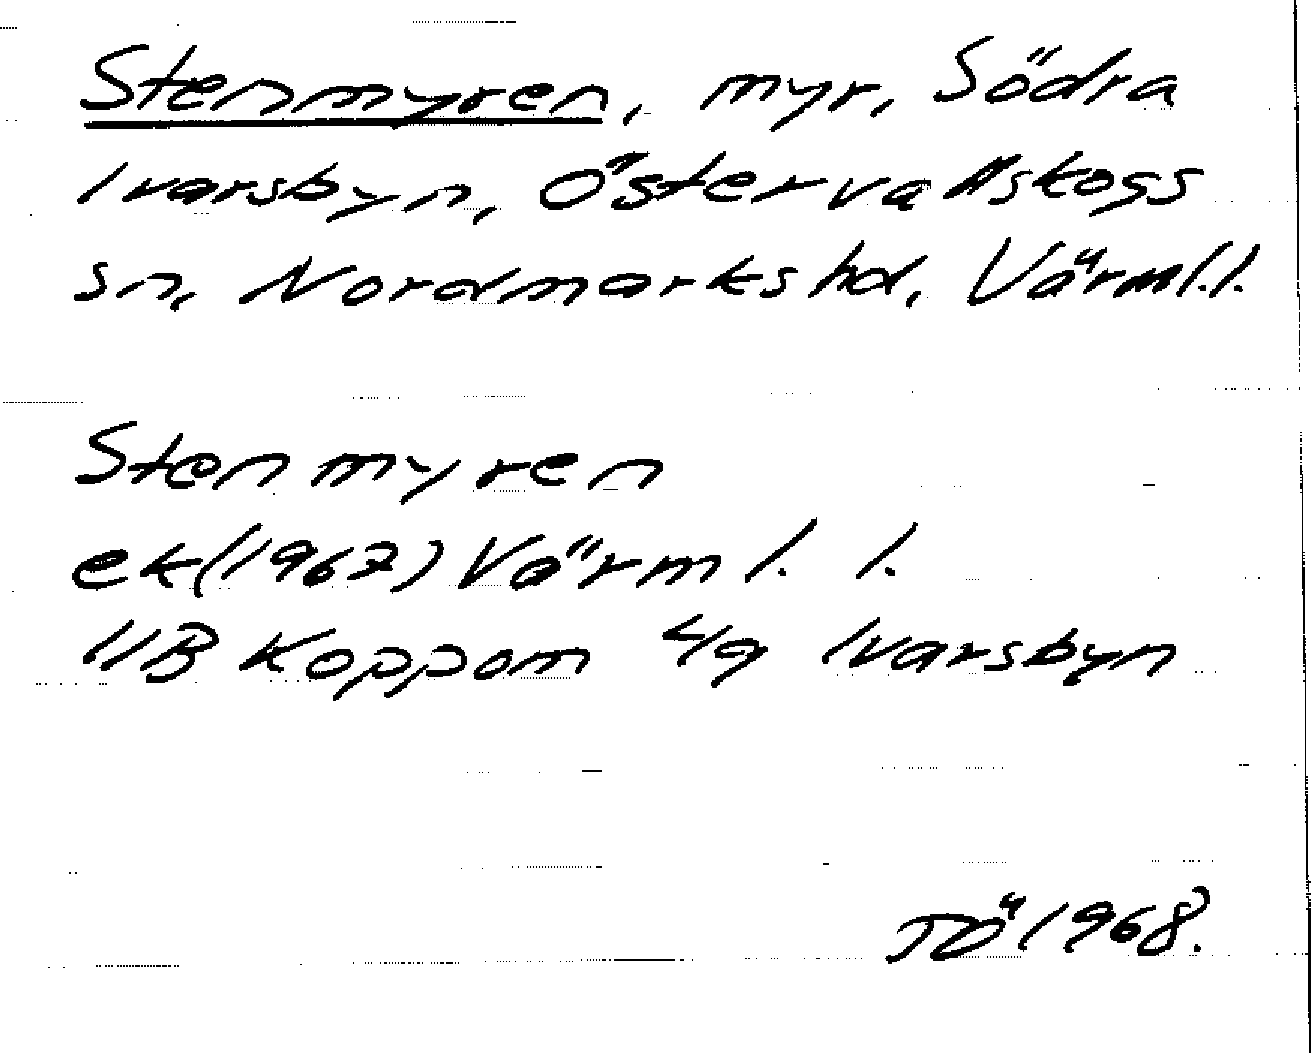 Stenmyren, myr, Södra
Ivarsbyn, Östervallskogs
sn, Nordmarks hd, Värml.l.
Stenmyren
ek(1967) Värml. l.
11B Koppom 4g Ivarsbyn
TÖ 1968.